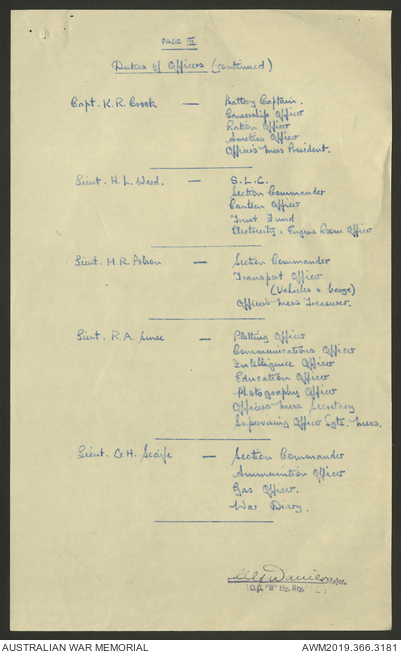 PAGE III
Duties of Officers (continued)
Capt. K.R. Crook — Battery Captain.
Censorship Officer
Ration Officer
Amenities Officer
Officers Mess President.
Lieut. H.L. Ward. — S.L.C.
Section Commander
Canteen Officer
Trust Fund
Electricity & Engine Room Officer
Lieut. H.R. Polson — Section Commander
Transport Officer
(Vehicles & Barge)
Officers Mess Treasurer.
Lieut. R.A. — Plotting Officer
Communications Officer
Intelligence Officer
Education Officer
Photography Officer
Officers Mess Secretary
Supervising Officer Sgts. Mess.
Lieut. G.H. Scaife — Section Commander
Ammunition Officer
Gas Officer.
War Diary.
Davies Major.
O.C. "B" Hy. Bty.
AUSTRALIAN WAR MEMORIAL
AWM2019.366.3181